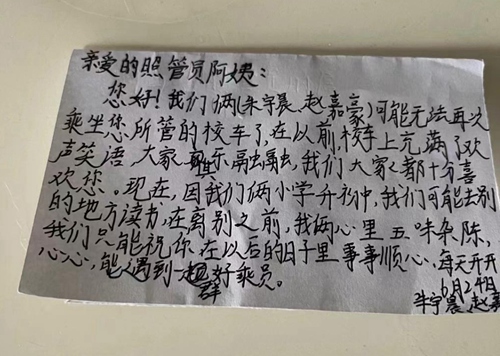 亲爱的照管员阿姨：
您好！我们俩(朱宇晨、赵嘉豪)可能无法再次
乘坐您所管的校车了，在以前，校车上充满了欢
声笑语，大家其乐融融，我们大家都十分喜
欢您。现在，因我们俩小学升初中，我们可能去别
的地方读书，在离别之前，我俩心里五味杂陈，
我们只能祝你在以后的日子里事事顺心，每天开开
心心，能遇到一群好乘员。
6月24日
朱宇晨 赵嘉